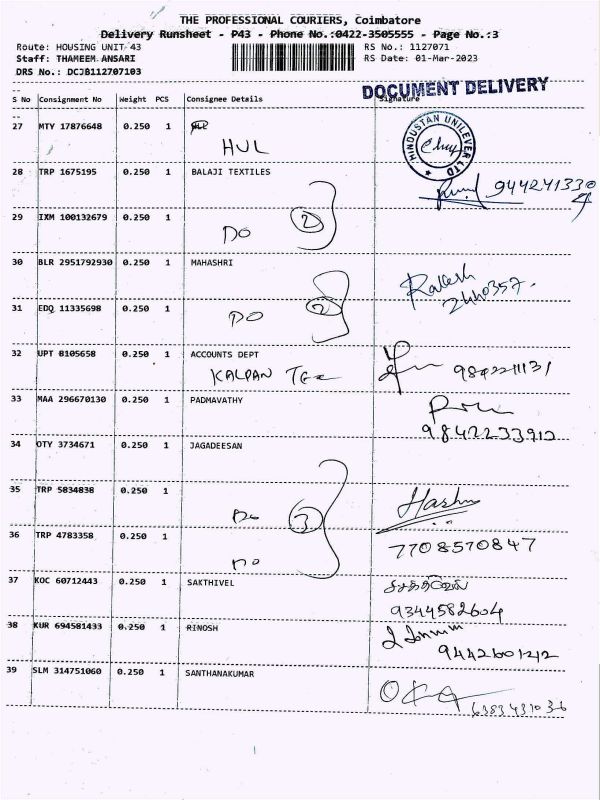 THE PROFESSIONAL COURIERS, Coimbatore
Delivery Runsheet - P43 - Phone No.:0422-3505555 - Page No.:3
Route: HOUSING UNIT 43
RS No.: 1127071
Staff: THAMEEM ANSARI
RS Date: 01-Mar-2023
DRS No.: DCJB112707103
DOCUMENT DELIVERY
S No Consignment No Weight PCS Consignee Details Signature
27 MTY 17876648 0.250 1
HUL
HINDUSTAN UNILEVER LTD
28 TRP 1675195 0.250 1 BALAJI TEXTILES
9442413304
29 IXM 100132679 0.250 1
DO 2
30 BLR 2951792930 0.250 1 MAHASHRI
Rakesh
2440357.
31 EDQ 11335698 0.250 1
DO 2
32 UPT 8105658 0.250 1 ACCOUNTS DEPT
KALPAN
33 MAA 296670130 0.250 1 PADMAVATHY
9842233912
34 OTY 3734671 0.250 1 JAGADEESAN
35 TRP 5834838 0.250 1
Do 3
Hashu
36 TRP 4783358 0.250 1
DO
7708570847
37 KOC 60712443 0.250 1 SAKTHIVEL
சக்திவேல்
9344582604
38 KUR 694581433 0.250 1 RINOSH
9442601212
39 SLM 314751060 0.250 1 SANTHANAKUMAR
6383431036